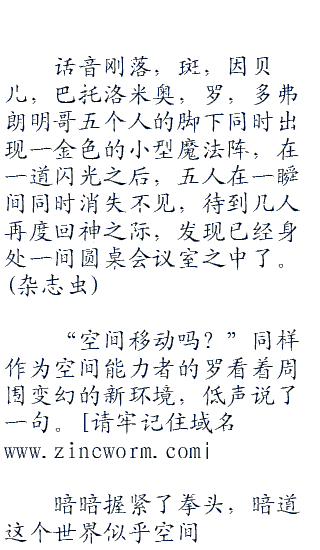 话音刚落，斑，因贝
儿，巴托洛米奥，罗，多弗
朗明哥五个人的脚下同时出
现一金色的小型魔法阵，在
一道闪光之后，五人在一瞬
间同时消失不见，待到几人
再度回神之际，发现已经身
处一间圆桌会议室之中了。
(杂志虫)
“空间移动吗？”同样
作为空间能力者的罗看着周
围变幻的新环境，低声说了
一句。[请牢记住域名
www.zincworm.com|
暗暗握紧了拳头，暗道
这个世界似乎空间